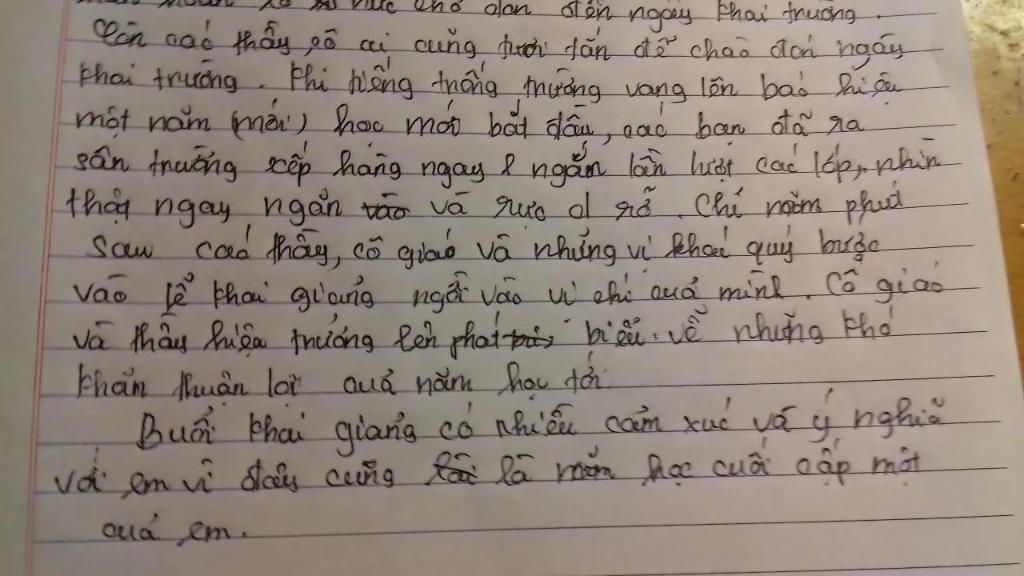 nức chờ đón đến ngày khai trường.
Còn các thầy, cô ai cũng tươi tắn để chào đón ngày
khai trường. Khi tiếng trống trường vang lên báo hiệu
một năm (mới) học mới bắt đầu, các bạn đã ra
sân trường xếp hàng ngay ngắn lần lượt các lớp, nhìn
thật ngay ngắn và rực rỡ. Chỉ năm phút
sau các thầy, cô giáo và những vị khác quý bước
vào lễ khai giảng ngồi vào vị chí quả mình. Cô giáo
và thầy hiệu trưởng lên phát biểu về những khó
khăn thuận lợi quả năm học tới.
Buổi khai giảng có nhiều cảm xúc và ý nghĩa
với em vì đây cũng là năm học cuối cấp một
quả em.